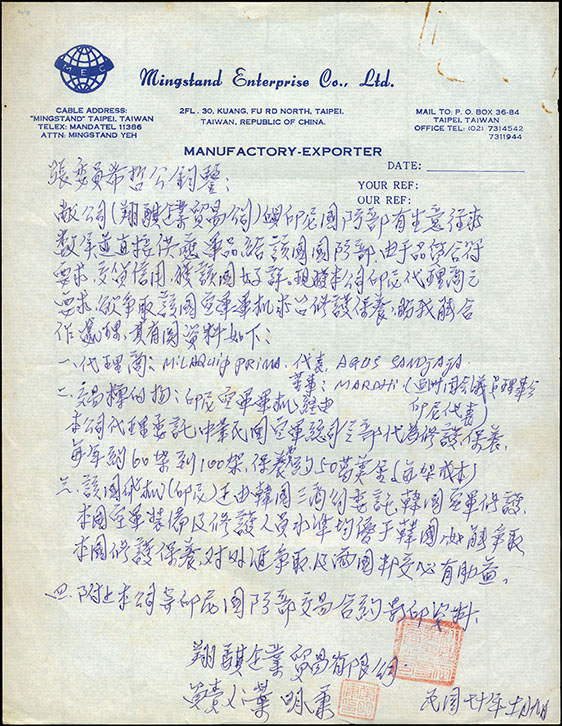 MEC
Mingstand Enterprise Co., Ltd.
CABLE ADDRESS:
"MINGSTAND" TAIPEI, TAIWAN
TELEX: MANDATEL 11386
ATTN: MINGSTAND YEH
2FL. 30, KUANG, FU RD NORTH, TAIPEI.
TAIWAN, REPUBLIC OF CHINA.
MAIL TO: P. O. BOX 36-84
TAIPEI, TAIWAN
OFFICE TEL: (02) 7314542
7311944
MANUFACTORY-EXPORTER
DATE:
YOUR REF:
OUR REF:
張委員希哲公鈞鑒:
敝公司(翔騏企業貿易公司)與印尼國防部有生意往來
數年並直接供應軍品給該國國防部,由于品質合符
要求,交貨信用,獲該國好評。現據本公司印尼代理商之
要求,欲爭取該國空軍軍机來台修護保養,盼我能合
作處理,其有関資料如下:
一.代理商: MILAQUIP PRIMA. 代表, AGUS SANDJAJA.
董事: MARDHI (亞洲国会議員理事会
印尼代表)
二.交易標的物:印尼空軍軍机經由
本公司代理委託中華民國空軍總司令部代為修護、保養,
每年約60架到100架,保養費約50萬美金(每架成本)
三.該國飛机(印尼)正由韓國三商句委託韓國空軍修護,
本國空軍裝備及修護人員水準均優于韓國,如能爭取
本國修護保養,對外匯爭取及両國邦交必有助益。
四.附上本公司等印尼國防部交易合約影印資料.
翔騏企業貿易有限公司
負責人葉明秉
民國七十年十一月八日